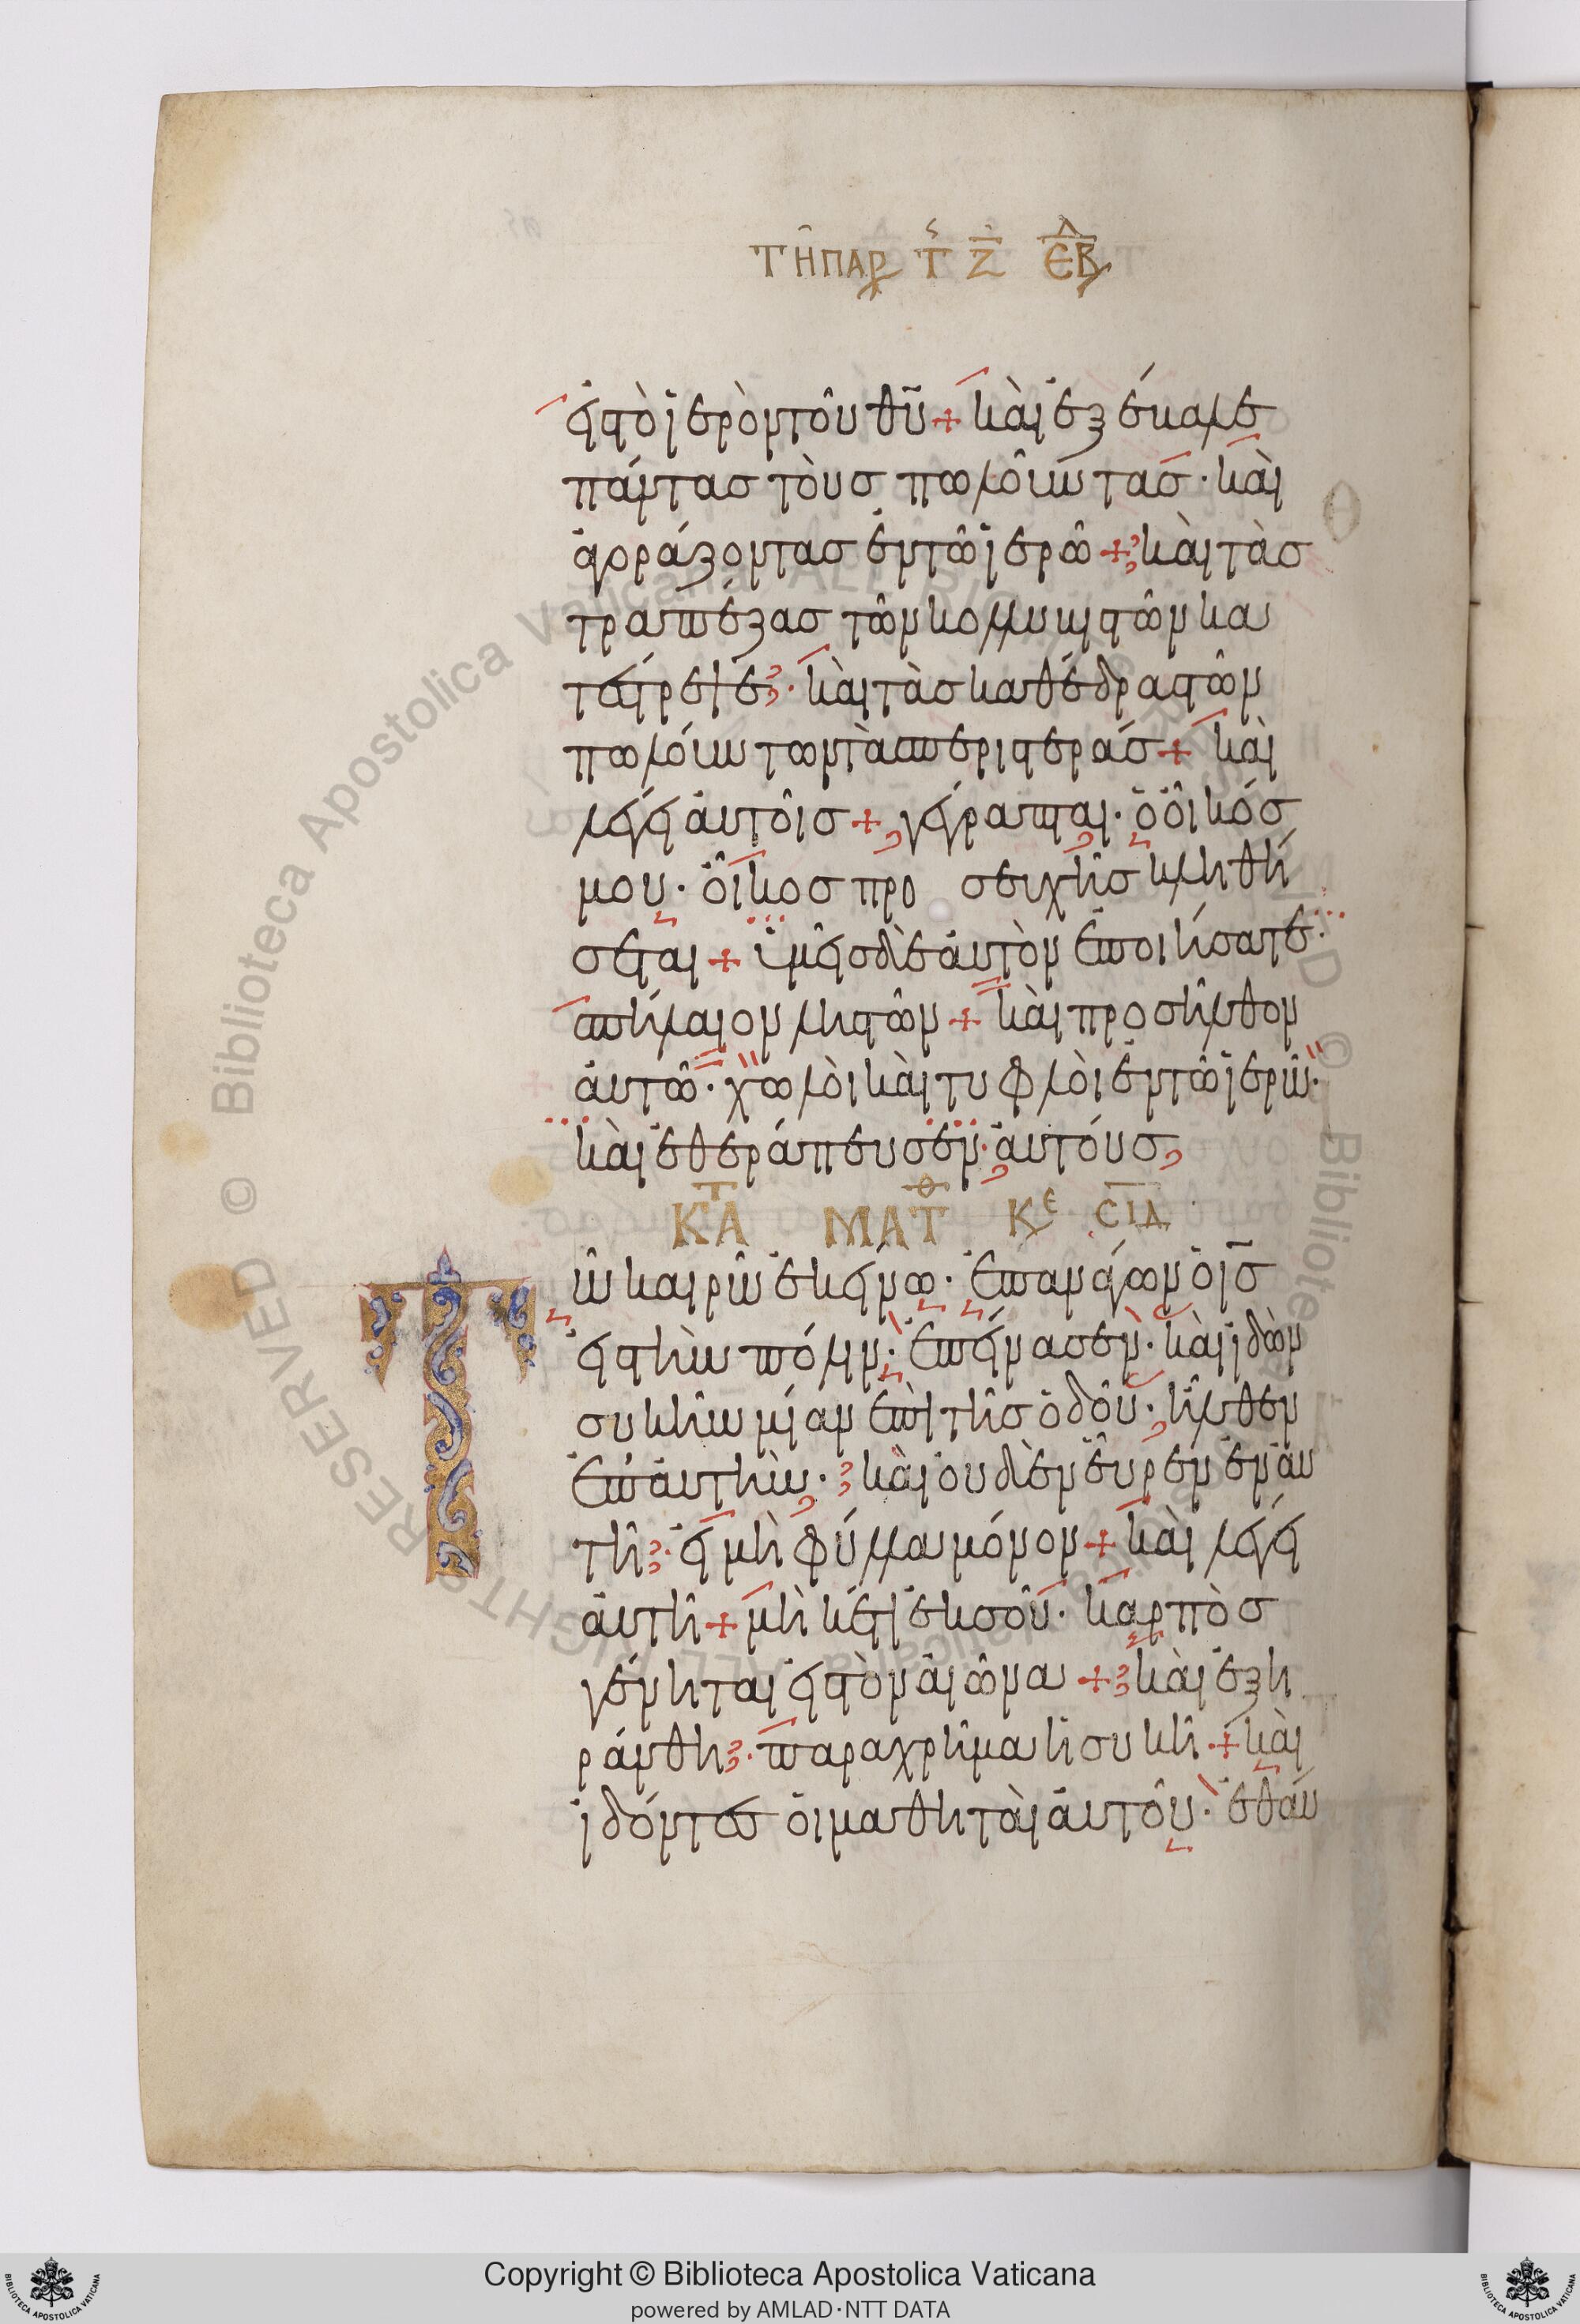 ΤΗ ΠΑΡ Τ Ζ ΕΒΔ
εἰς τὸ ἱερὸν τοῦ θυ + καὶ ἐξέβαλε
πάντασ τοὺσ πωλοῦντασ · καὶ
ἀγοράζοντασ ἐν τῶ ἱερῶ + καὶ τὰσ
τραπέζασ τῶν κολλυβιστῶν κα
τέστρεψε · καὶ τὰσ καθέδρασ τῶν
πωλούντων τὰσ περιστεράσ + καὶ
λέγει αὐτοῖσ + γέγραπται · ὁ οἶκόσ
μου · οἶκοσ προσευχῆσ κληθή
σεται + ὑμεῖσ δὲ αὐτὸν ἐποιήσατε ·
σπήλαιον ληστῶν + καὶ προσῆλθον
αὐτῶ · χωλοὶ καὶ τυφλοὶ ἐν τῶ ἱερῶ ·
καὶ ἐθεράπευσεν · αὐτούσ
ΚΑΤ ΜΑΤΘ ΚΕ ϹΙΔ
Τῶ καιρῶ ἐκείνω · ἐπανάγων ὁ ισ
εἰσ τὴν πόλιν · ἐπείνασεν · καὶ ἰδὼν
συκῆν μίαν ἐπὶ τῆσ ὁδοῦ · ἦλθεν
ἐπ αὐτὴν · καὶ οὐδὲν εὗρεν ἐν αὐ
τῆ · εἰ μὴ φύλλα μόνον + καὶ λέγει
αὐτῆ + μὴ κέτι ἐκ σοῦ · καρπὸσ
γένηται εἰσ τὸν αἰῶνα + καὶ ἐξη
ράνθη · παραχρῆμα ἡ συκῆ + καὶ
ἰδόντεσ οἱ μαθηταὶ αὐτοῦ · ἐθαύ
Copyright © Biblioteca Apostolica Vaticana
powered by AMLAD·NTT DATA